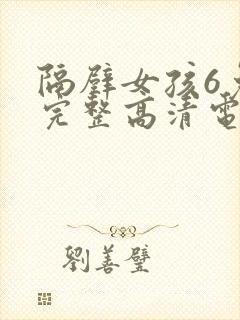 隔壁女孩6
完整高清電
劉善璧